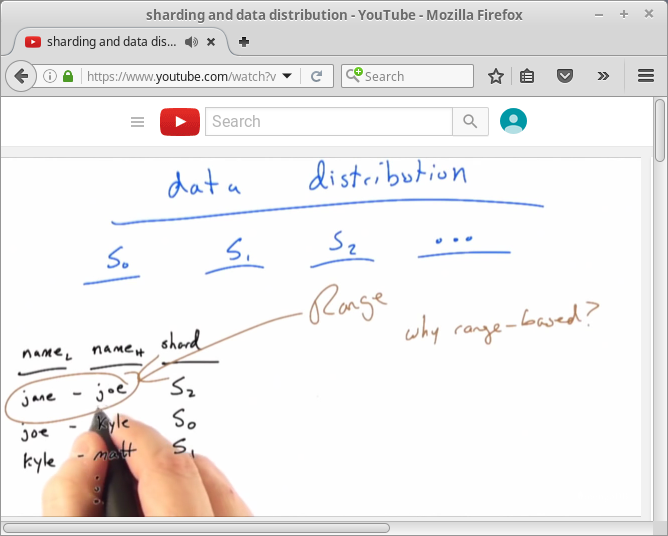 sharding and data distribution - YouTube - Mozilla Firefox
sharding and data dis...
https://www.youtube.com/watch?v
Search
Search
data distribution
S0 S1 S2 ...
Range
why range-based?
nameL nameH shard
jane - joe S2
joe - kyle S0
kyle - matt S1